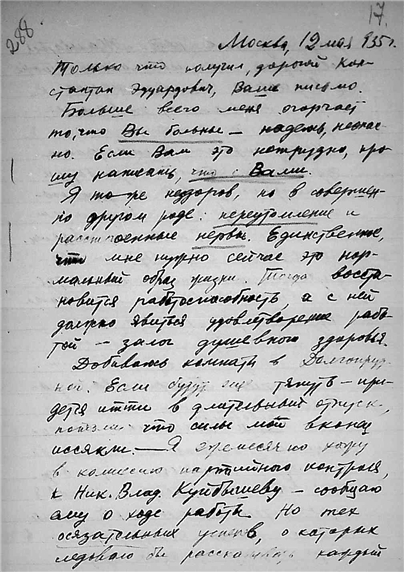 288.
17.
Москва, 12 мая 935 г.
Только что получил, дорогой Кон-
стантин Эдуардович, Ваше письмо.
Больше всего меня огорчает
то, что Вы больны — надеюсь, неопас-
но. Если Вам это нетрудно, про-
шу написать, что с Вами.
Я тоже нездоров, но в совершен-
но другом роде: переутомление и
расстроенные нервы. Единственное,
что мне нужно сейчас это нор-
мальный образ жизни. Тогда восста-
новится работоспособность, а с ней
должно явиться удовлетворение рабо-
той — залог душевного здоровья.
Добиваюсь комнаты в Долгопруд-
ной. Если будут ещё тянуть — при-
дётся итти в длительный отпуск,
потому что силы мои вконец
иссякли. — Я ежемесячно хожу
в комиссию партийного контроля,
к Ник. Влад. Куйбышеву — сообщаю
ему о ходе работы. Но тех
осязательных успехов, о которых
следовало бы рассказывать каждый